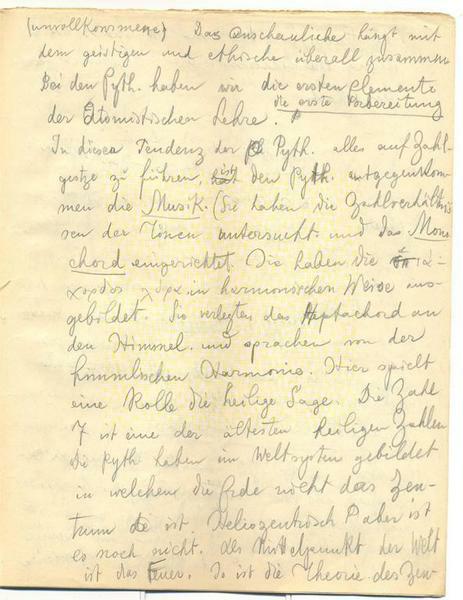 (unvollkommene) Das anschauliche hängt mit
dem geistigen und ethische überall zusammen
Bei den Pyth. haben wir die ersten Elemente
die erste Vorbereitung
der Atomistischen Lehre.
In dieser Tendenz der Pyth. alles auf Zahl-
gestze zu führen, ist den Pyth. entgegenkom-
men die Musik. (Sie haben die Zahlverhältnis
sen der Tönen untersucht und das Mono
chord eingerichtet. Die haben die
χορδος λύρα in harmonischen Weise aus-
gebildet. Sie verlegten das Heptachord an
den Himmel. und sprachen von der
himmlischen Harmonie. Hier spielt
eine Rolle die heilige Sage. Die Zahl
7 ist eine der ältesten heiligen Zahlen
Die Pyth haben im Weltsystem gebildet
in welchem die Erde nicht das Zen-
trum ist. Heliozentrisch aber ist
es noch nicht. Als Mittelpunkt der Welt
ist das Feuer. So ist die Theorie des Zen